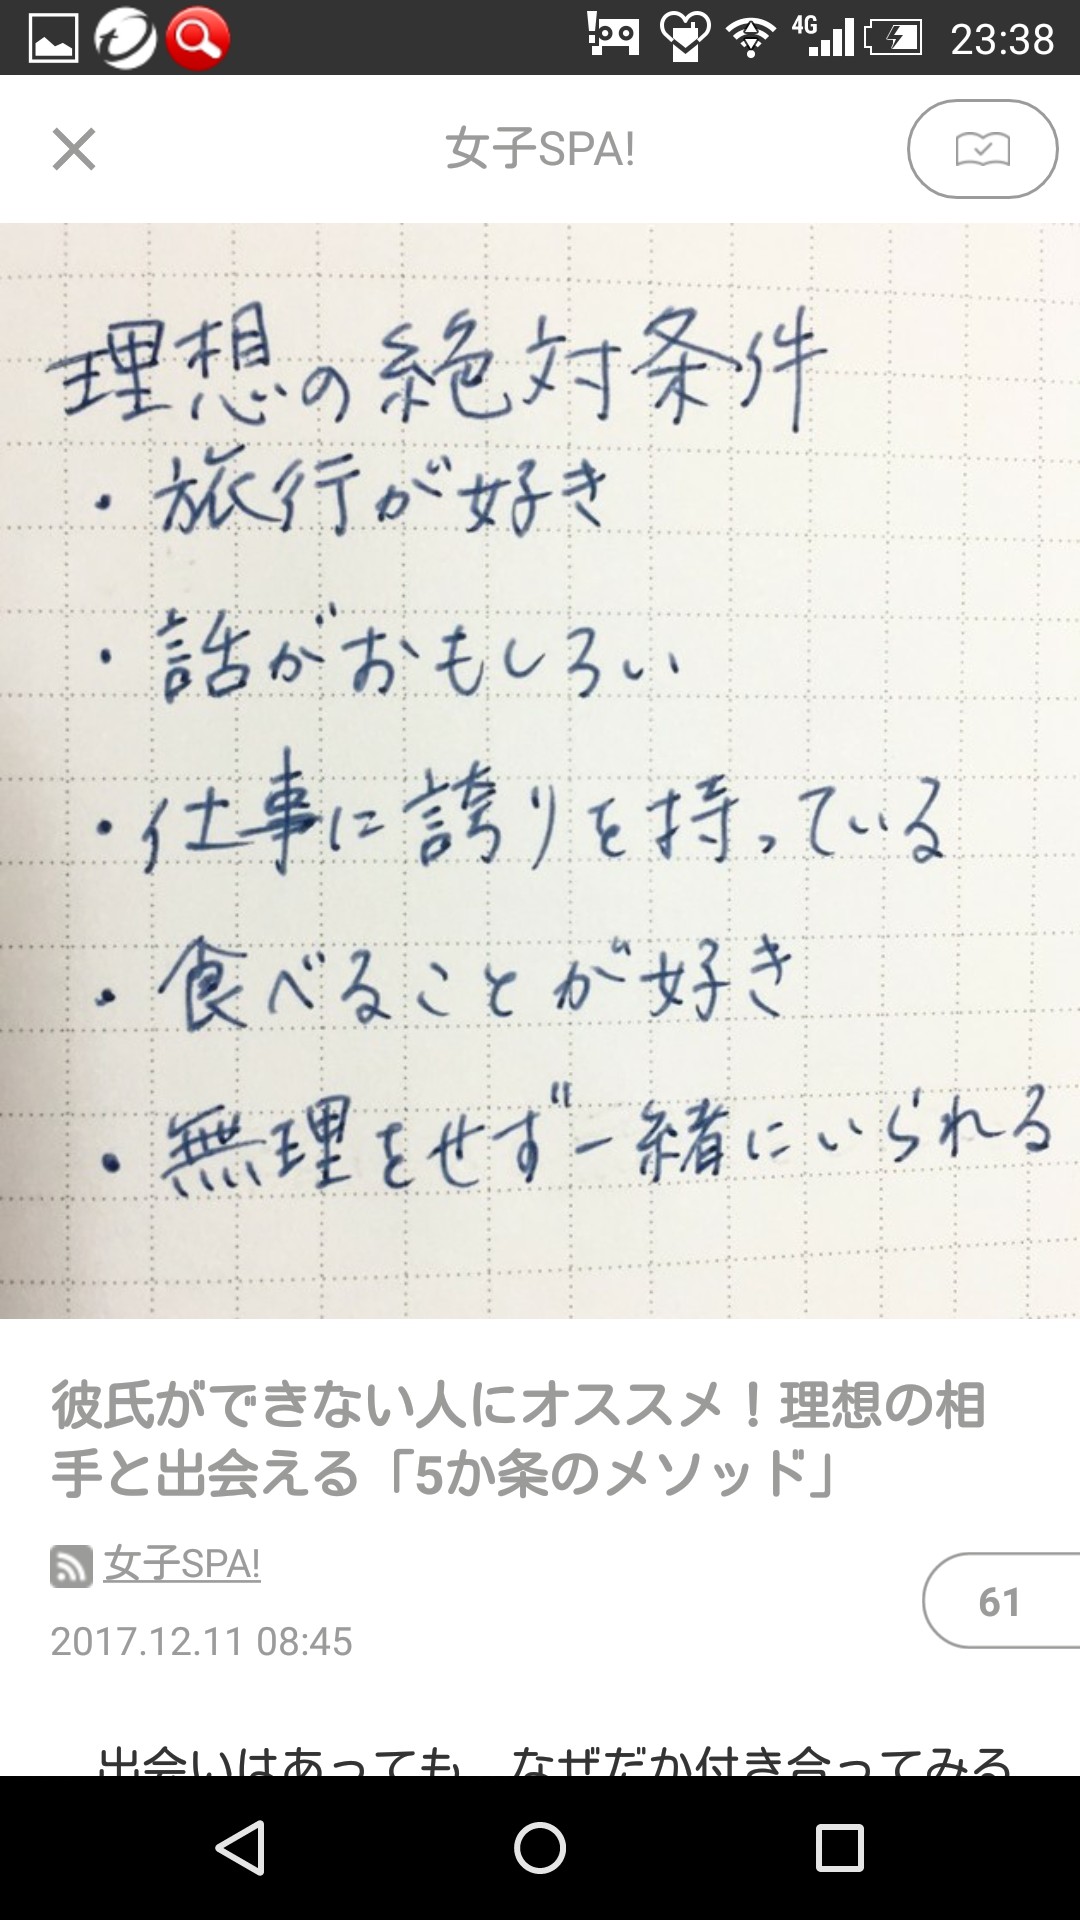 4G 23:38
女子SPA!
理想の絶対条件
・旅行が好き
・話がおもしろい
・仕事に誇りを持っている
・食べることが好き
・無理をせず一緒にいられる
彼氏ができない人にオススメ！理想の相
手と出会える「5か条のメソッド」
女子SPA!
61
2017.12.11 08:45
出会いはあっても、なぜだか付き合ってみる